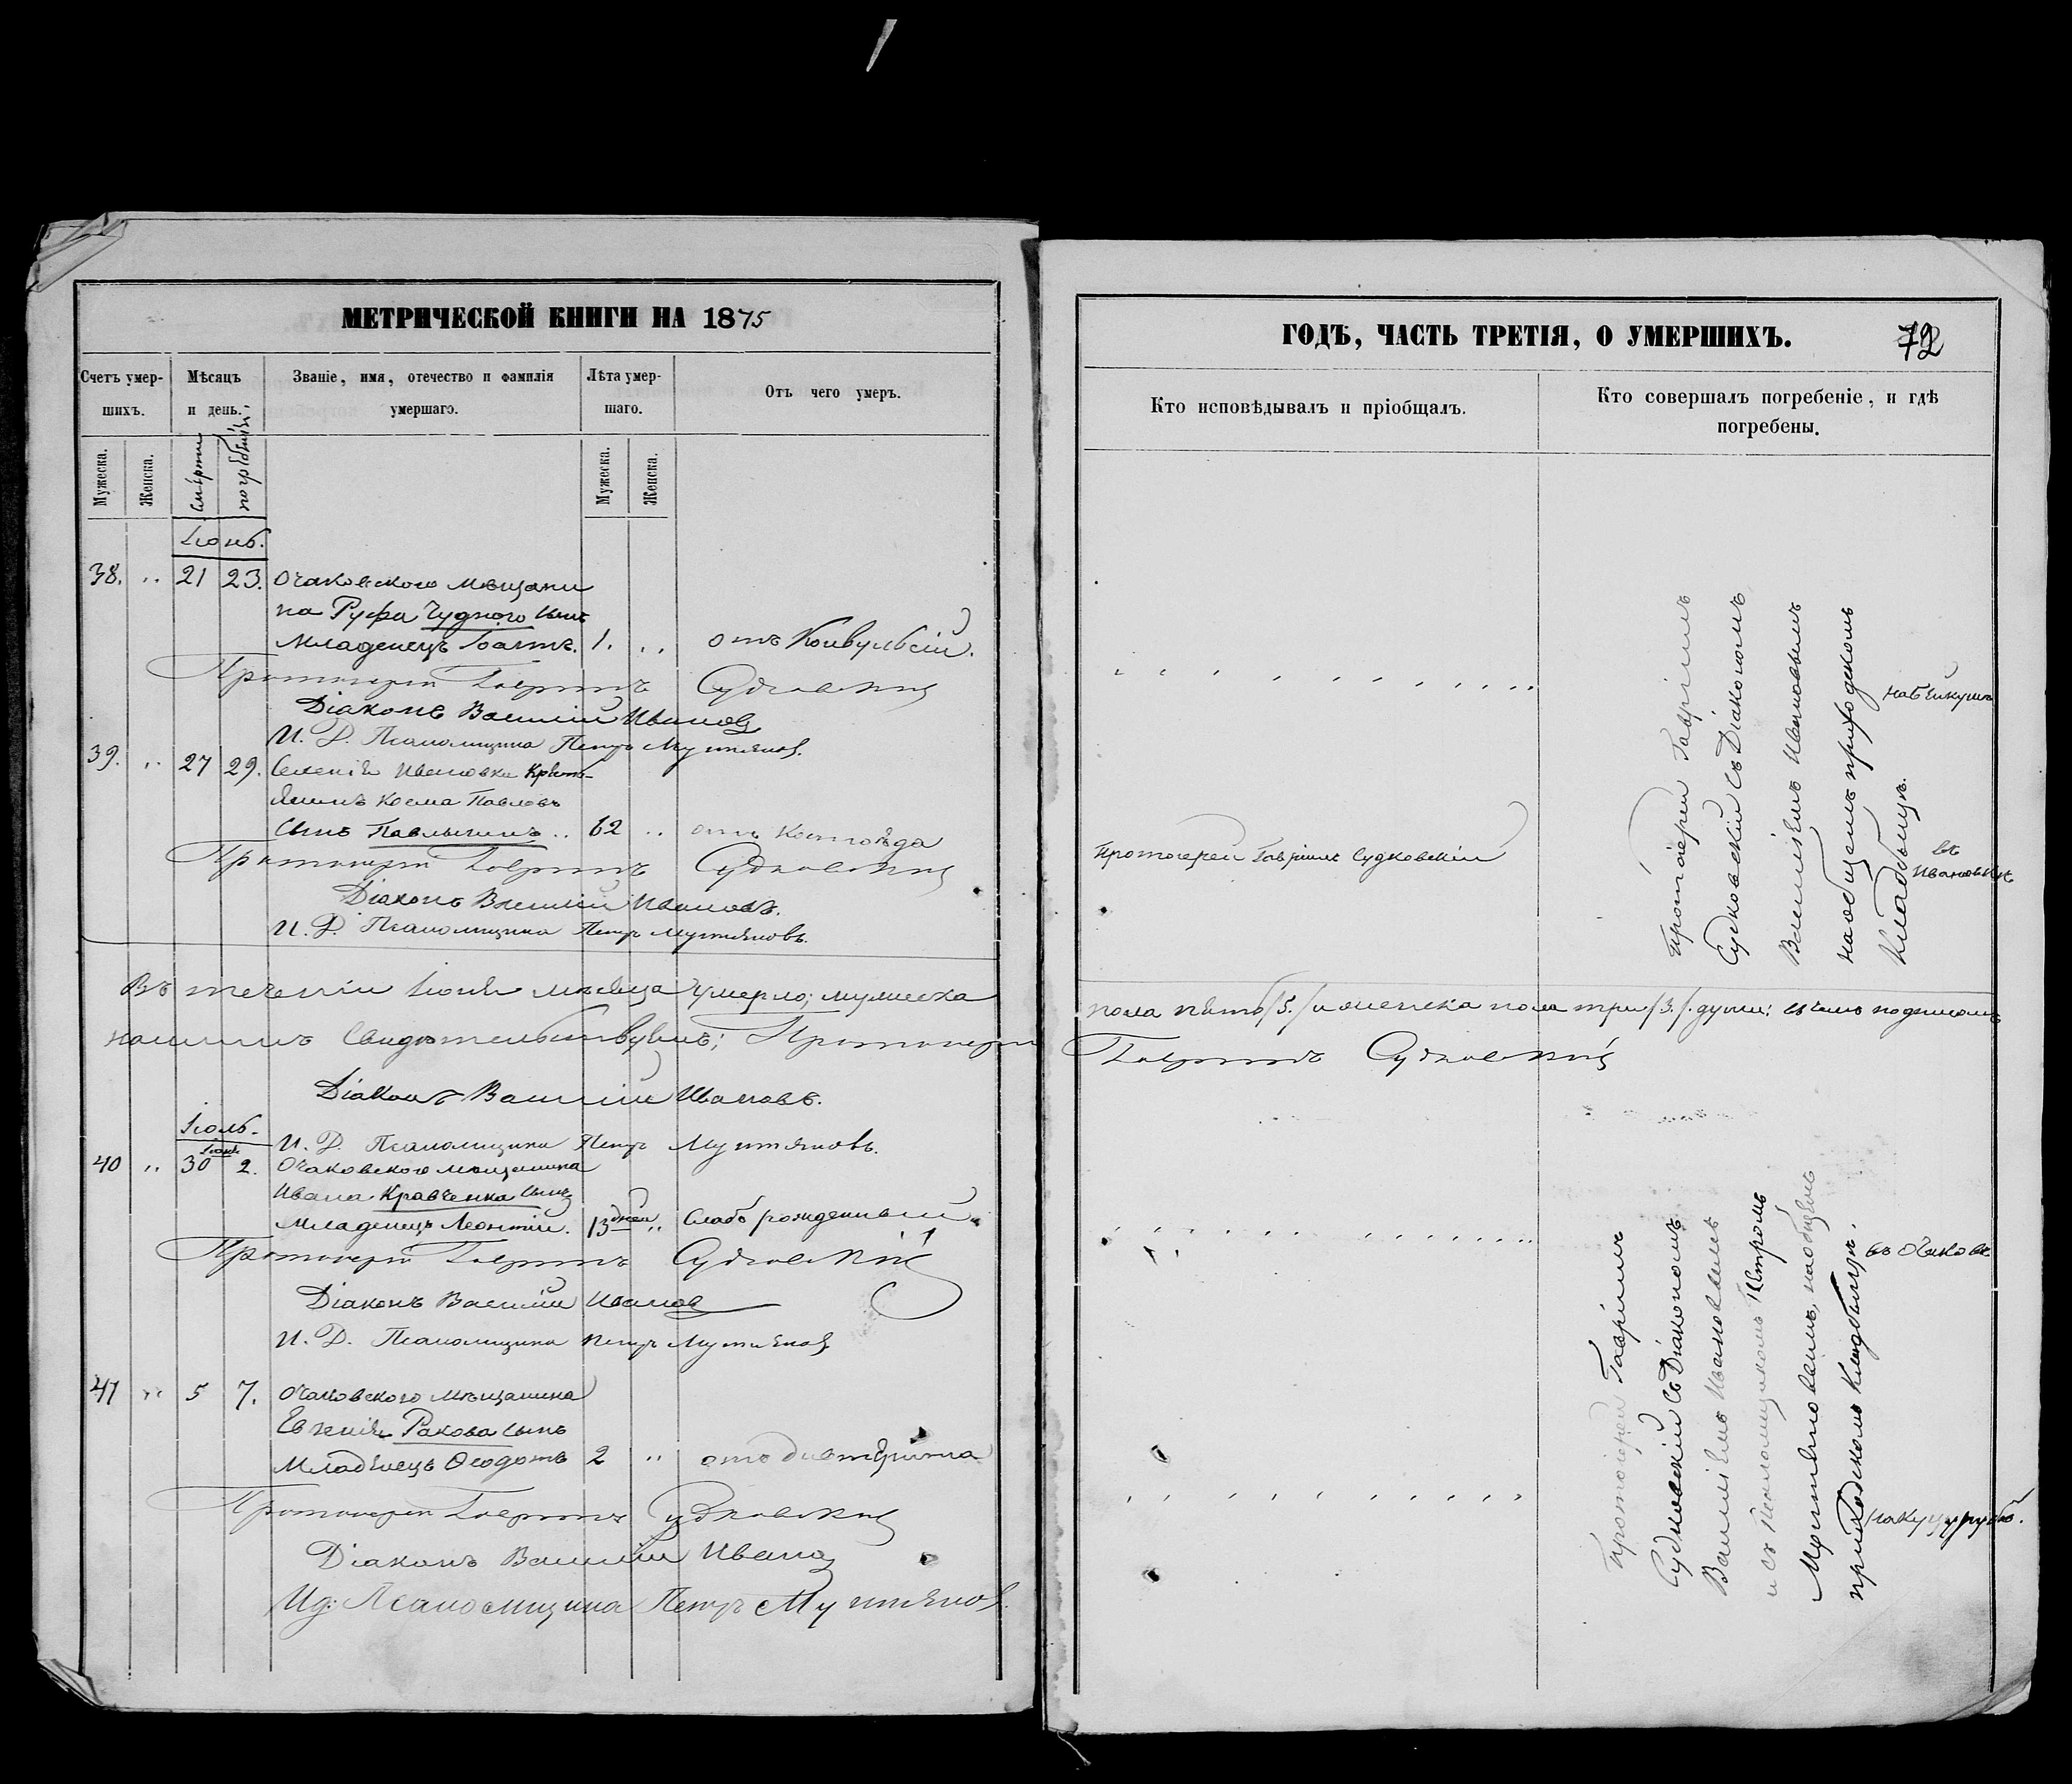 МЕТРИЧЕСКОЙ КНИГИ НА 1875
Счетъ умер-
шихъ.
Мѣсяцъ
и день.
Званіе, имя, отечество и фамилія
умершаго.
Лѣта умер-
шаго.
Отъ чего умеръ.
Мужеска.
Женска.
смерти
погребенія
Мужеска.
Женска.
Іюнь.
38. .. 21 23. Очаковского мѣщани
на Руфа Чудного сынъ
младенецъ 1. .. отъ Конвульсій.
Протоіерей Гавріилъ Судковскій
Діаконъ Василій Ивановъ
И. Д. Псаломщика Петръ Мултяновъ.
39. .. 27 29. Селенія Ивановки Крѣсть-
янинъ Косма Павловъ
сынъ .. 62 .. отъ Костоѣда
Протоіерей Гавріилъ Судковскій
Діаконъ Василій Ивановъ.
И. Д. Псаломщика Петръ Мултяновъ.
Въ теченіи Іюня мѣсяца умерло; мужеска
нашимъ Свидѣтельствуемъ; Протоіерей
Діаконъ Василій Ивановъ.
Іюль.
И. Д. Псаломщика Петръ Мултяновъ.
Іюня
40 .. 30 2. Очаковского мѣщанина
Ивана Кравченка сынъ
Младенецъ Леонтій. 13 дней .. Слабо рожденный.
Протоіерей Гавріилъ Судковскій
Діаконъ Василій Ивановъ
И. Д. Псаломщика Петръ Мултяновъ
41 .. 5 7. Очаковского мѣщанина
Евгенія Ракова сынъ
Младенецъ Ѳеодотъ 2 .. отъ дифтерита
Протоіерей Гавріилъ Судковскій
Діаконъ Василій Ивановъ
Ид: Псаломщика Петръ Мултяновъ.
ГОДЪ, ЧАСТЬ ТРЕТІЯ, О УМЕРШИХЪ.
72
Кто исповѣдывалъ и пріобщалъ.
Кто совершалъ погребеніе, и гдѣ
погребены.
Протоіерей Гавріилъ
Судковскій съ Діакономъ
Василіемъ Ивановымъ
на общемъ приходскомъ
кладбищѣ.
на Бейкушѣ
Протоіерей Гавріилъ Судковскій
въ
Ивановкѣ
пола пять /5./ и женска пола три /3./ души; въ чемъ подписомъ
Гавріилъ Судковскій
Протоіерей Гавріилъ
Судковскій съ Діакономъ
Василіемъ Ивановымъ
и съ Псаломщикомъ Петромъ
Мултяновымъ, на общемъ
приходскомъ кладбищѣ.
въ Очаковѣ